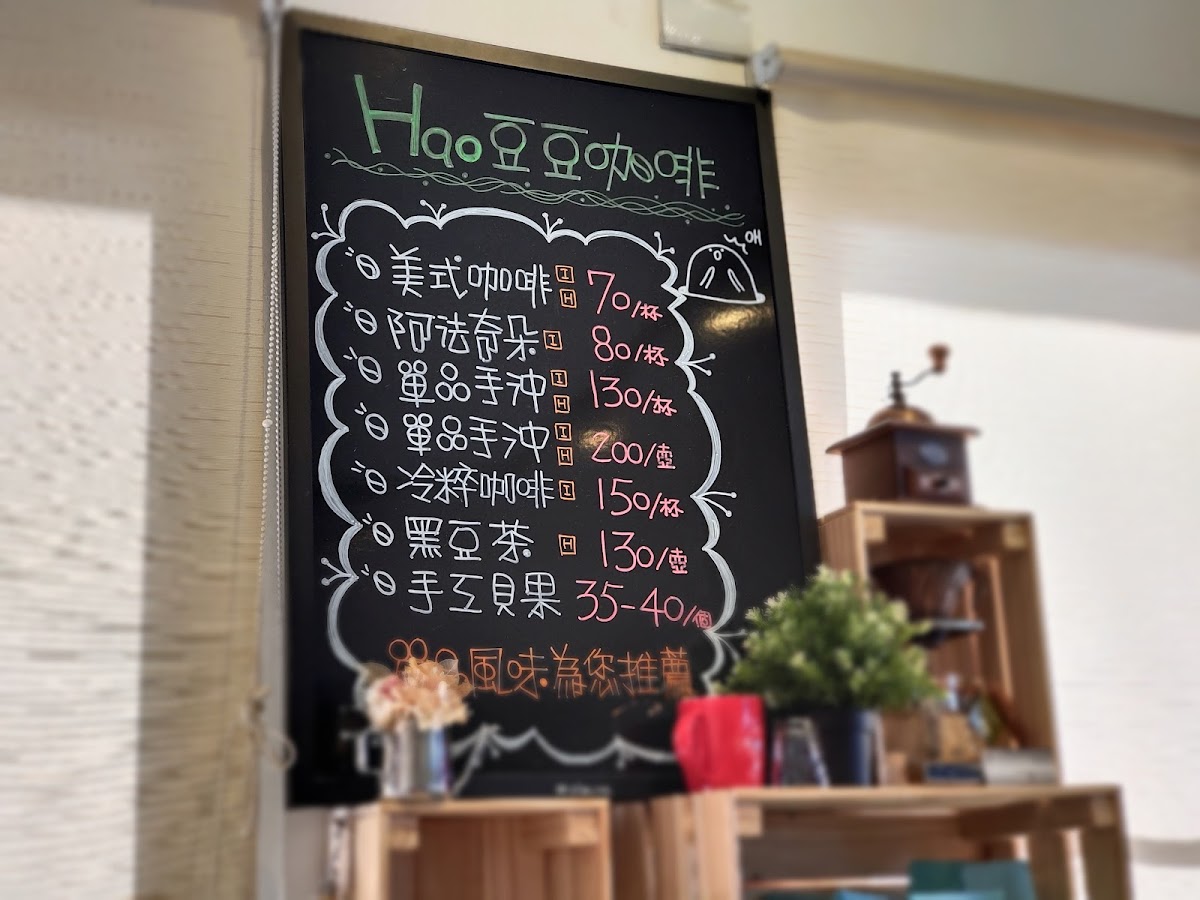 Hao豆豆咖啡
애
美式咖啡 I H 70/杯
阿法奇朵 I 80/杯
單品手沖 I H 130/杯
單品手沖 I H 200/壺
冷粹咖啡 I 150/杯
黑豆茶 H 130/壺
手工貝果 35-40/個
單品風味為您推薦